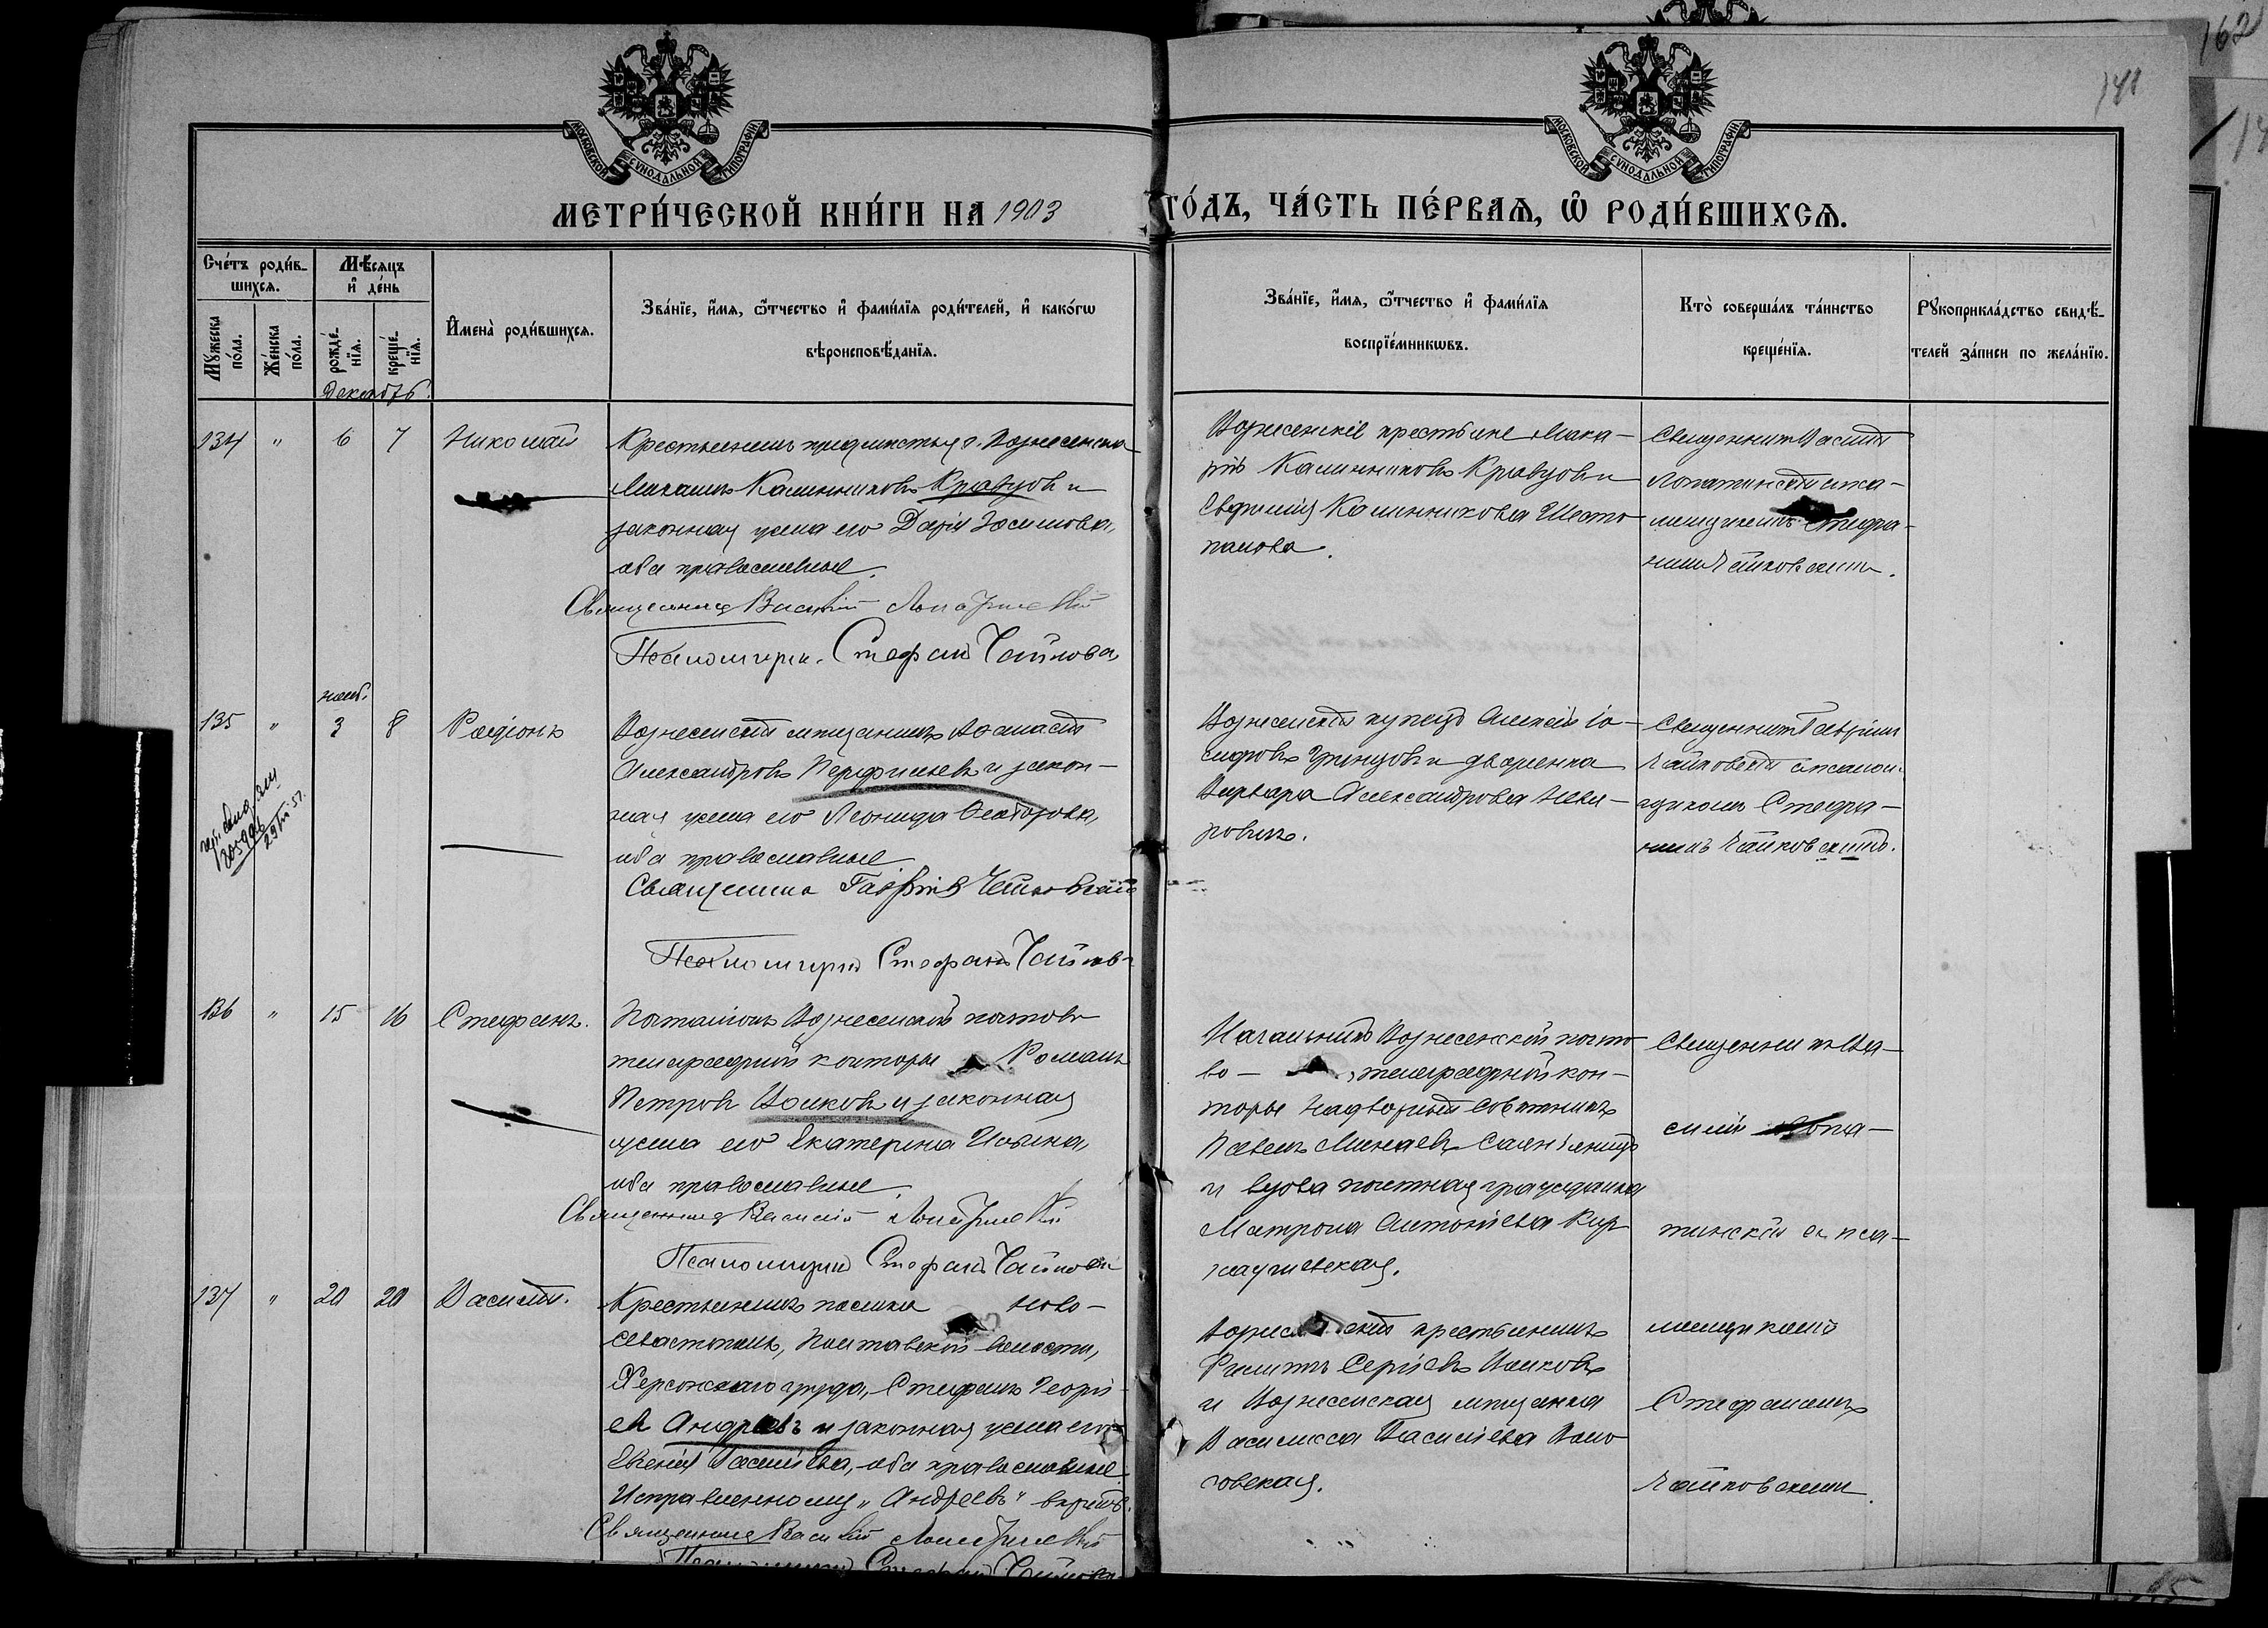 162
141
МОСКОВСКОЙ СѴНОДАЛЬНОЙ ТИПОГРАФІИ.
МОСКОВСКОЙ СѴНОДАЛЬНОЙ ТИПОГРАФІИ.
МЕТРИ́ЧЕСКОЙ КНИ́ГИ НА 1903
ГО́ДЪ, ЧА́СТЬ ПЕ́РВАѦ, Ѽ РОДИ́ВШИХСѦ.
Сче́тъ роди́в-
шихсѧ.
Мѣ́сѧцъ
и҆ де́нь
Мꙋ́жеска по́ла.
Же́нска по́ла.
рожде́-
нїѧ.
креще́-
нїѧ.
И҆мена̀ роди́вшихсѧ.
Зва́нїе, и҆́мѧ, ѻ҆́тчество и҆ фами́лїѧ роди́телей, и҆ како́гѡ
вѣроисповѣ́данїѧ.
Зва́нїе, и҆́мѧ, ѻ҆́тчество и҆ фами́лїѧ
воспрїе́мникѡвъ.
Кто̀ соверша́лъ та́инство
креще́нїѧ.
Рꙋкоприкла́дство свидѣ́-
телей за́писи по жела́нїю.
Декабрь.
134 " 6 7 Николай
Крестьянинъ предмѣстья г. Вознесенска
Михаилъ Калинниковъ Кравцовъ и
законная жена его Дарія Іосифова,
оба православные.
Священникъ Василій Лопатинскій
Псаломщикъ Стефанъ Чайков
Вознесенскіе крестьяне Мака-
рій Калинниковъ Кравцовъ и
Евфимія Калинникова Шесто-
палова.
Священникъ Василій
Лопатинскій съ пса-
ломщикомъ Стефа-
номъ Чайковскимъ.
нояб.
135 " 3 8 Родіонъ
205996
29 VIII 51.
Вознесенскій мѣщанинъ Аѳанасій
Александровъ Перфильевъ и закон-
ная жена его Леонида Ѳеодорова,
оба православные
Священникъ Гавріилъ Чайковскій
Псаломщикъ Стефанъ Чайков
Вознесенскій купецъ Алексѣй Іо-
сифовъ Гринцовъ и дворянка
Варвара Александровна Неви-
ровичъ.
Священникъ Гавріилъ
Чайковскій съ псалом-
щикомъ Стефа-
номъ Чайковскимъ.
136 " 15 16 Стефанъ.
Почталіонъ Вознесенской почтово-
телеграфной конторы Романъ
Петровъ Волковъ и законная
жена его Екатерина Ильина,
оба православные.
Священникъ Василій Лопатинскій
Псаломщикъ Стефанъ Чайков
Начальникъ Вознесенской почто-
во- телеграфной кон-
торы Надворный Совѣтникъ
Павелъ Минаевъ
и вдова почетная гражданка
Матрона Антоніева Кир-
Священникъ Ва-
силій Лопа-
тинскій съ пса-
ломщикомъ
Стефаномъ
Чайковскимъ.
137 " 20 20 Василій.
Крестьянинъ поселка Ново-
севастополь, Полтавской волости,
Херсонскаго уѣзда, Стефанъ Георгі-
евъ Андреевъ и законная жена его
Евгенія Василіева, оба православные
Исправленному „Андреевъ" вѣрить.
Священникъ Василій Лопатинскій
Псаломщикъ Стефанъ Чайков
Вознесенскій крестьянинъ
Филиппъ Сергіевъ Волковъ
и Вознесенская мѣщанка
Василисса Василіева Воло-
говская.